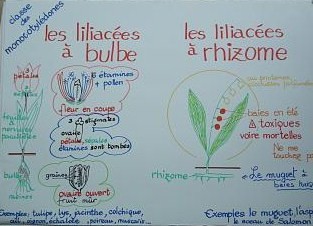 classe des monocotylédones
les liliacées
à bulbe
pétales
sépales
feuilles
à
nervures
parallèles
bulbe
racines
6 étamines
+ pollen
fleur en coupe
3 stigmates
ovaire
pétales, sépales
étamines sont tombés
graines
ovaire ouvert
fruit mûr
Exemples: tulipe, lys, jacinthe, colchique,
ail, oignon, échalote, poireau, muscari...
les liliacées
à rhizome
au printemps
baies en été
toxiques
voire mortelles
Ne me
touchez pas
rhizome
Le muguet à
baies rouges
Exemples le muguet, l'asp
le sceau de Salomon